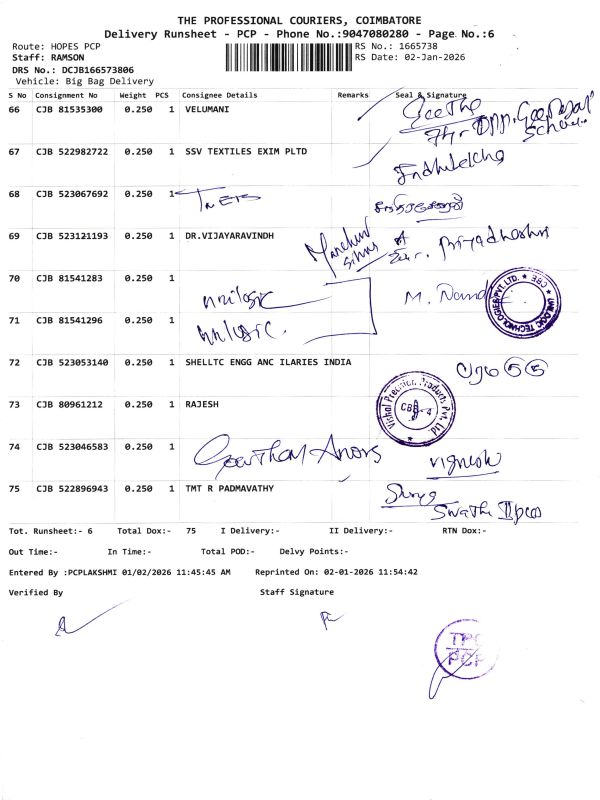 THE PROFESSIONAL COURIERS, COIMBATORE
Delivery Runsheet - PCP - Phone No.:9047080280 - Page No.:6
Route: HOPES PCP
RS No.: 1665738
Staff: RAMSON
RS Date: 02-Jan-2026
DRS No.: DCJB166573806
Vehicle: Big Bag Delivery
S No Consignment No Weight PCS Consignee Details Remarks Seal & Signature
66 CJB 81535300 0.250 1 VELUMANI
Geetha
Opp.
67 CJB 522982722 0.250 1 SSV TEXTILES EXIM PLTD
68 CJB 523067692 0.250 1
69 CJB 523121193 0.250 1 DR.VIJAYARAVINDH
Priyadharshni
70 CJB 81541283 0.250 1
unilogic
M. Nand
UNILOGIC TECHNOLOGIES PVT. LTD. ★ CBE ★
71 CJB 81541296 0.250 1
unilogic.
72 CJB 523053140 0.250 1 SHELLTC ENGG ANC ILARIES INDIA
73 CJB 80961212 0.250 1 RAJESH
Vishal Precision Products Pvt. Ltd.
CBE-4
74 CJB 523046583 0.250 1
Gowtham
vignesh
75 CJB 522896943 0.250 1 TMT R PADMAVATHY
Swathi
Tot. Runsheet:- 6 Total Dox:- 75 I Delivery:- II Delivery:- RTN Dox:-
Out Time:- In Time:- Total POD:- Delvy Points:-
Entered By :PCPLAKSHMI 01/02/2026 11:45:45 AM Reprinted On: 02-01-2026 11:54:42
Verified By Staff Signature
TPC
PCP